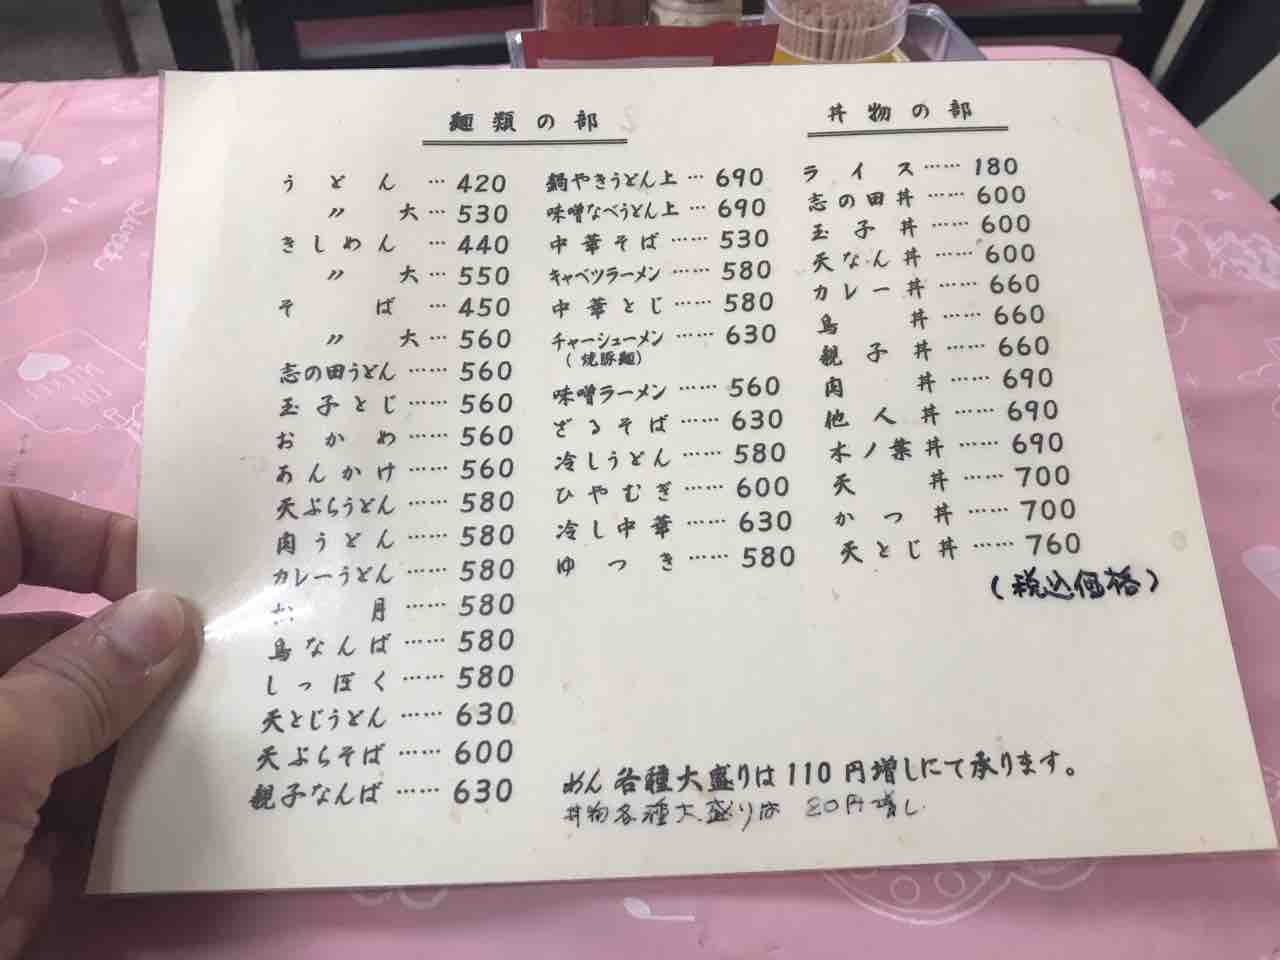 麺類の部
うどん…420
〃 大…530
きしめん…440
〃 大…550
そば…450
〃 大…560
志の田うどん……560
玉子とじ……560
おかめ……560
あんかけ……560
天ぷらうどん……580
肉うどん……580
カレーうどん……580
月……580
鳥なんば……580
しっぽく……580
天とじうどん……630
天ぷらそば……600
親子なんば……630
鍋やきうどん上…690
味噌なべうどん上…690
中華そば……530
キャベツラーメン……580
中華とじ……580
チャーシューメン……630
(焼豚麺)
味噌ラーメン……560
ざるそば……630
冷しうどん……580
ひやむぎ……600
冷し中華……630
ゆつき……580
丼物の部
ライス……180
志の田丼……600
玉子丼……600
天なん丼……600
カレー丼……660
鳥丼……660
親子丼……660
肉丼……690
他人丼……690
木ノ葉丼……690
天丼……700
かつ丼……700
天とじ丼……760
(税込価格)
めん各種大盛りは110円増しにて承ります。
丼物各種大盛りは 円増し